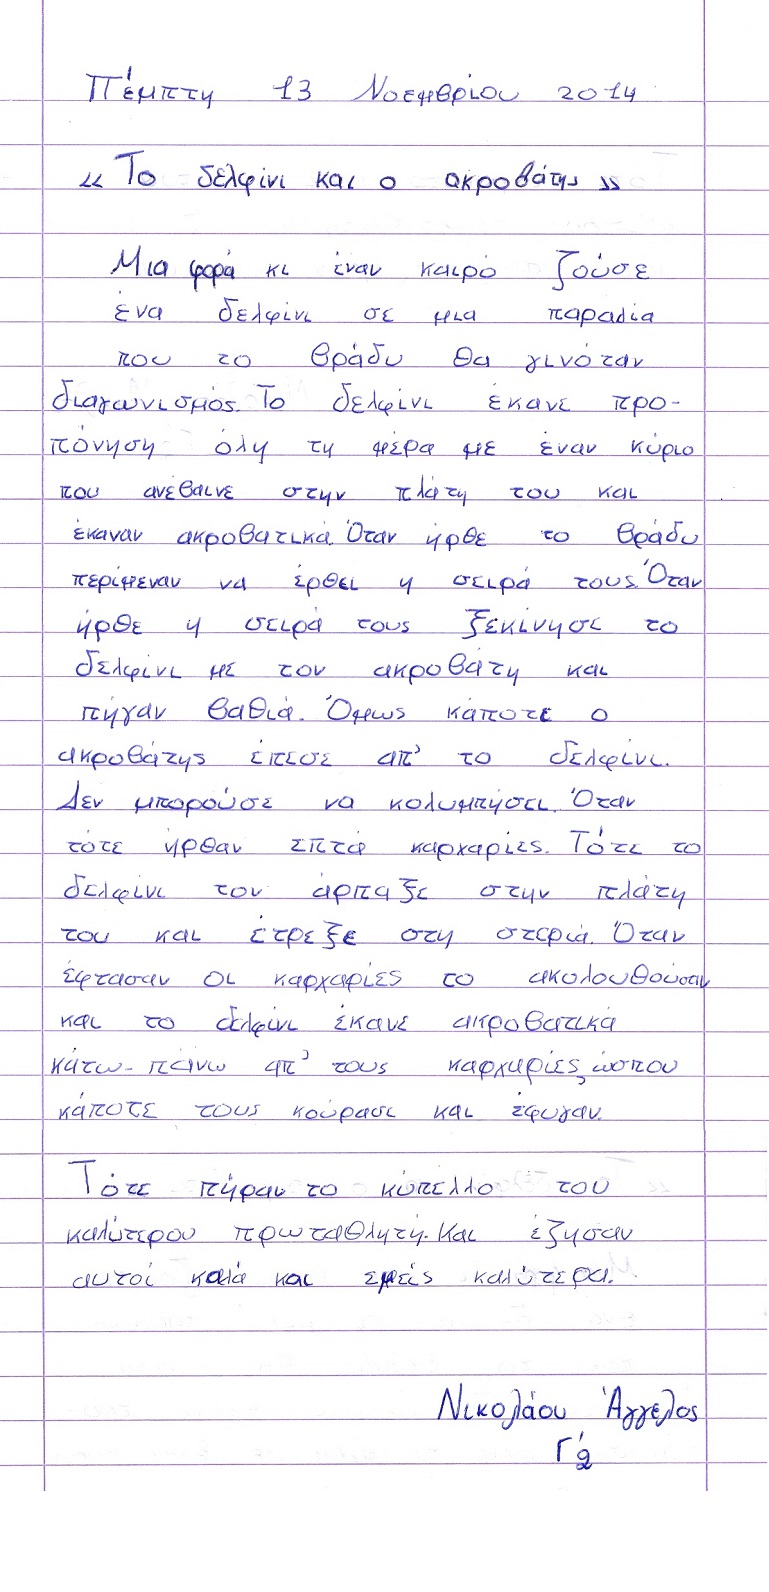 Πέμπτη 13 Νοεμβρίου 2014
«Το δελφίνι και ο ακροβάτης»
Μια φορά κι έναν καιρό ζούσε
ένα δελφίνι σε μια παραλία
που το βράδυ θα γινόταν
διαγωνισμός. Το δελφίνι έκανε προ-
πόνηση όλη τη μέρα με έναν κύριο
που ανέβαινε στην πλάτη του και
έκαναν ακροβατικά. Όταν ήρθε το βράδυ
περίμεναν να έρθει η σειρά τους. Όταν
ήρθε η σειρά τους ξεκίνησε το
δελφίνι με τον ακροβάτη και
πήγαν βαθιά. Όμως κάποτε ο
ακροβάτης έπεσε απ' το δελφίνι.
Δεν μπορούσε να κολυμπήσει. Όταν
τότε ήρθαν επτά καρχαρίες. Τότε το
δελφίνι τον άρπαξε στην πλάτη
του και έτρεξε στη στεριά. Όταν
έφτασαν οι καρχαρίες το ακολουθούσαν
και το δελφίνι έκανε ακροβατικά
κάτω-πάνω απ' τους καρχαρίες, ώσπου
κάποτε τους κούρασε και έφυγαν.
Τότε πήραν το κύπελλο του
καλύτερου πρωταθλητή. Και έζησαν
αυτοί καλά και εμείς καλύτερα.
Νικολάου Άγγελος
Γ'2